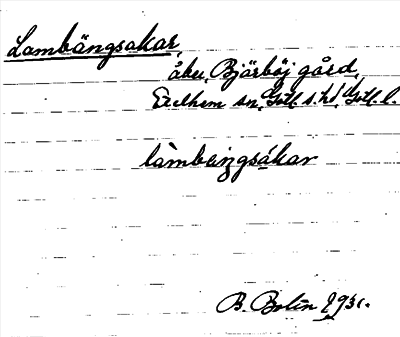 Lambängsakar,
åker, Bjärböj gård,
Etelhem sn, Gotl. s. hd, Gotl. l.
làmbeŋgsákar
B. Bolin 1931.